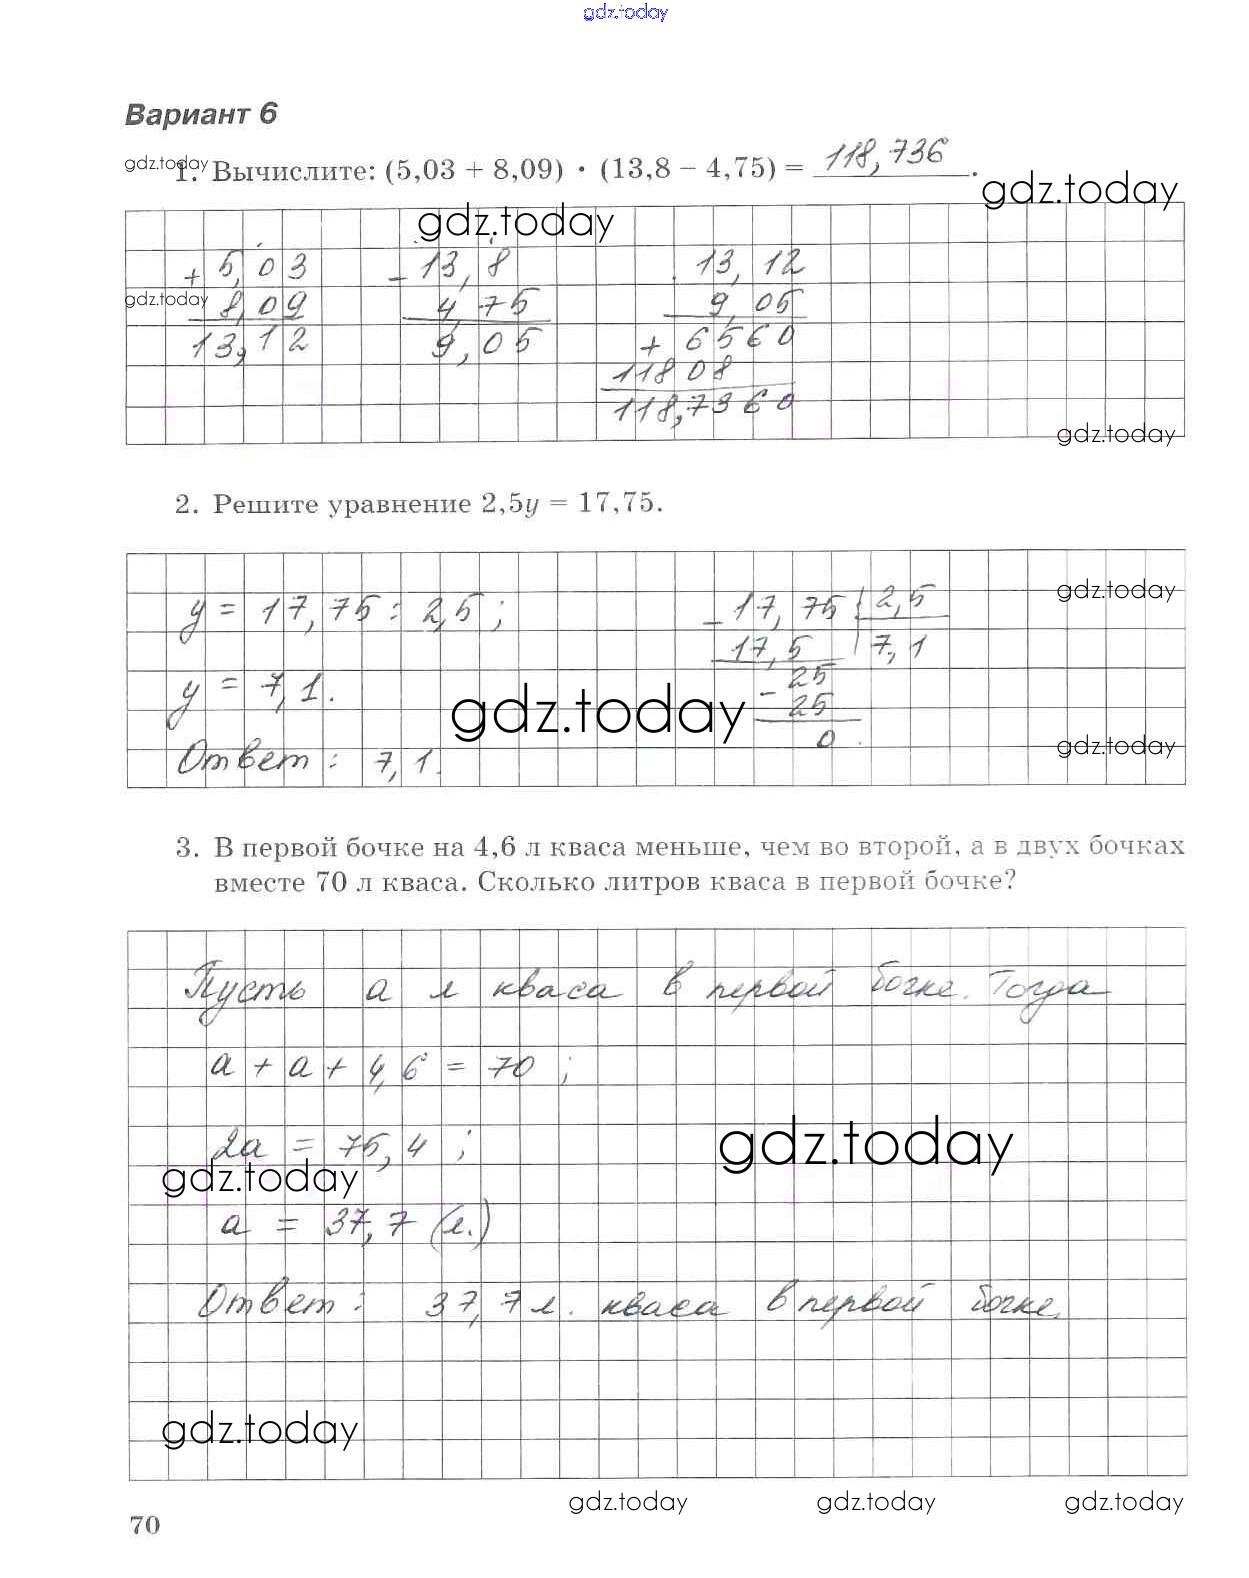 gdz.today
Вариант 6
gdz.today
1. Вычислите: (5,03 + 8,09) · (13,8 – 4,75) = 118,736.
gdz.today
gdz.today
+ 5,03 - 13,8 13,12
gdz.today
8,09 4,75 9,05
13,12 9,05 + 6560
11808
118,7360
gdz.today
2. Решите уравнение 2,5y = 17,75.
gdz.today
y = 17,75 : 2,5 ; - 17,75 2,5
17,5 7,1
y = 7,1. - 25
gdz.today
25
0
gdz.today
Ответ : 7,1.
3. В первой бочке на 4,6 л кваса меньше, чем во второй, а в двух бочках
вместе 70 л кваса. Сколько литров кваса в первой бочке?
Пусть a л кваса в первой бочке. Тогда
a + a + 4,6 = 70 ;
gdz.today
2a = 75,4 ;
gdz.today
a = 37,7 (л.)
Ответ : 37,7 л. кваса в первой бочке.
gdz.today
gdz.today gdz.today gdz.today
70